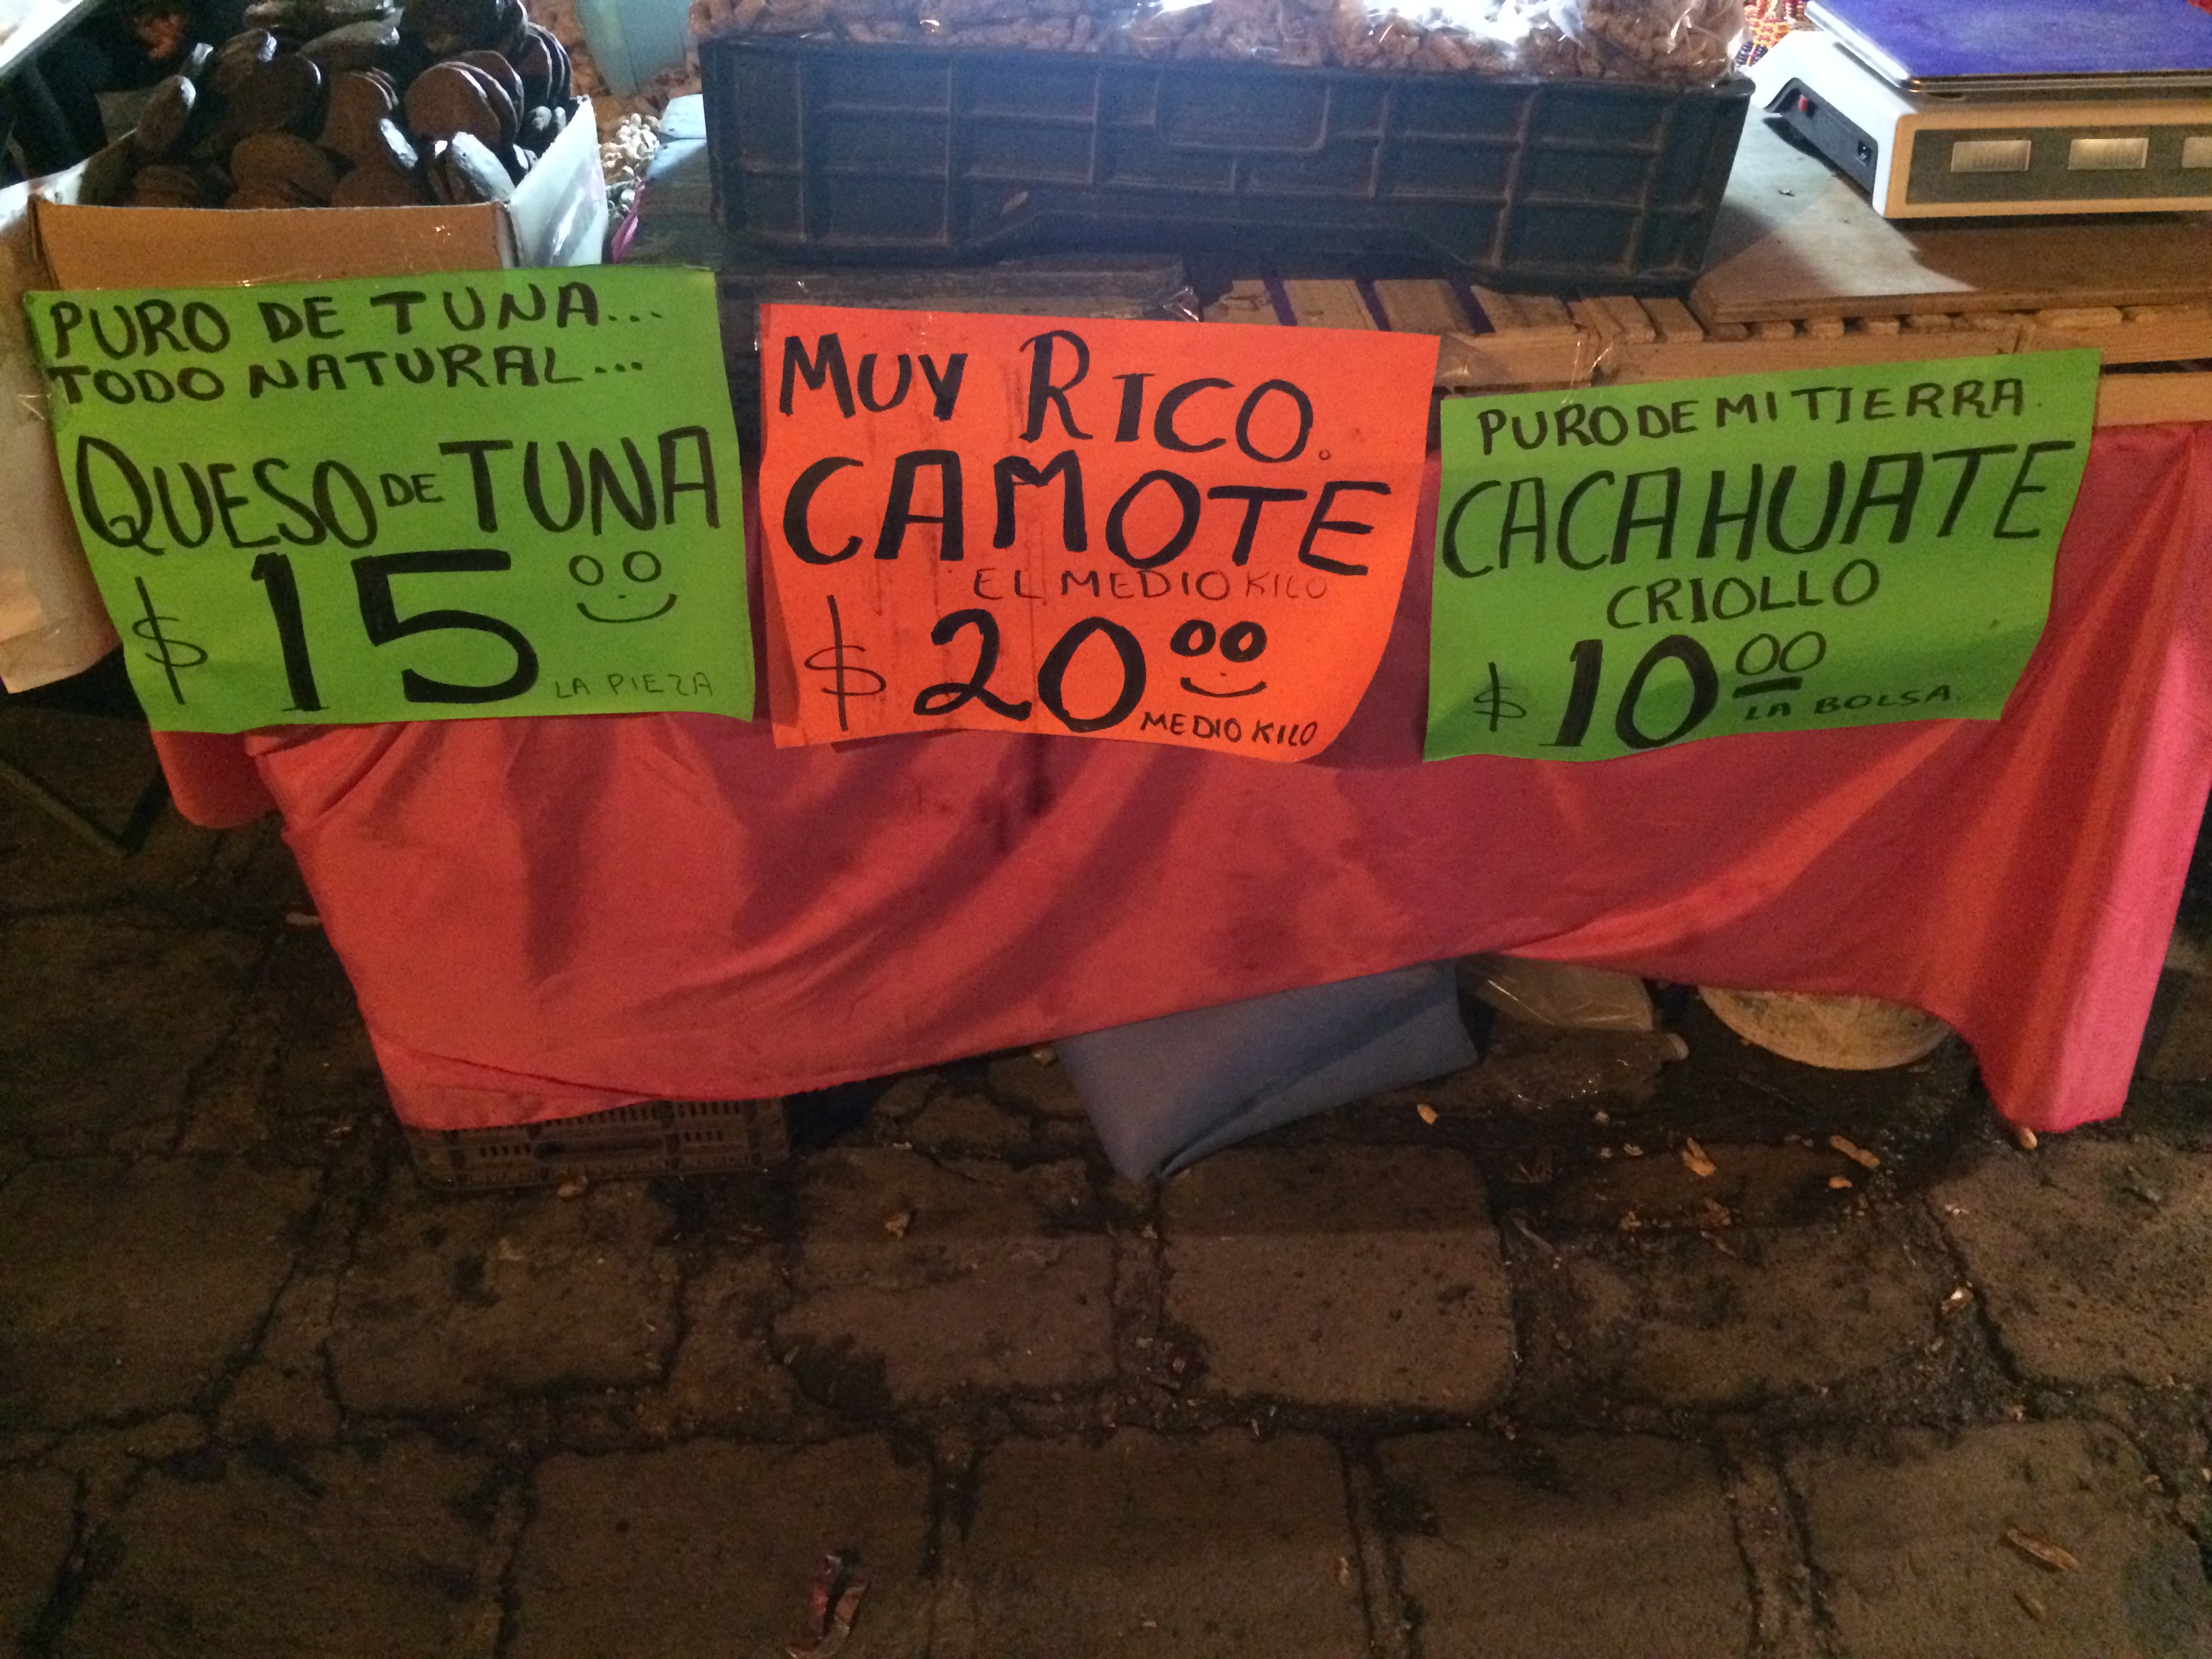 PURO DE TUNA...
TODO NATURAL...
QUESO DE TUNA
$ 15 00
LA PIEZA
MUY RICO.
CAMOTE
EL MEDIO KILO
$ 20 00
MEDIO KILO
PURO DE MI TIERRA.
CACAHUATE
CRIOLLO
$ 10 00
LA BOLSA.